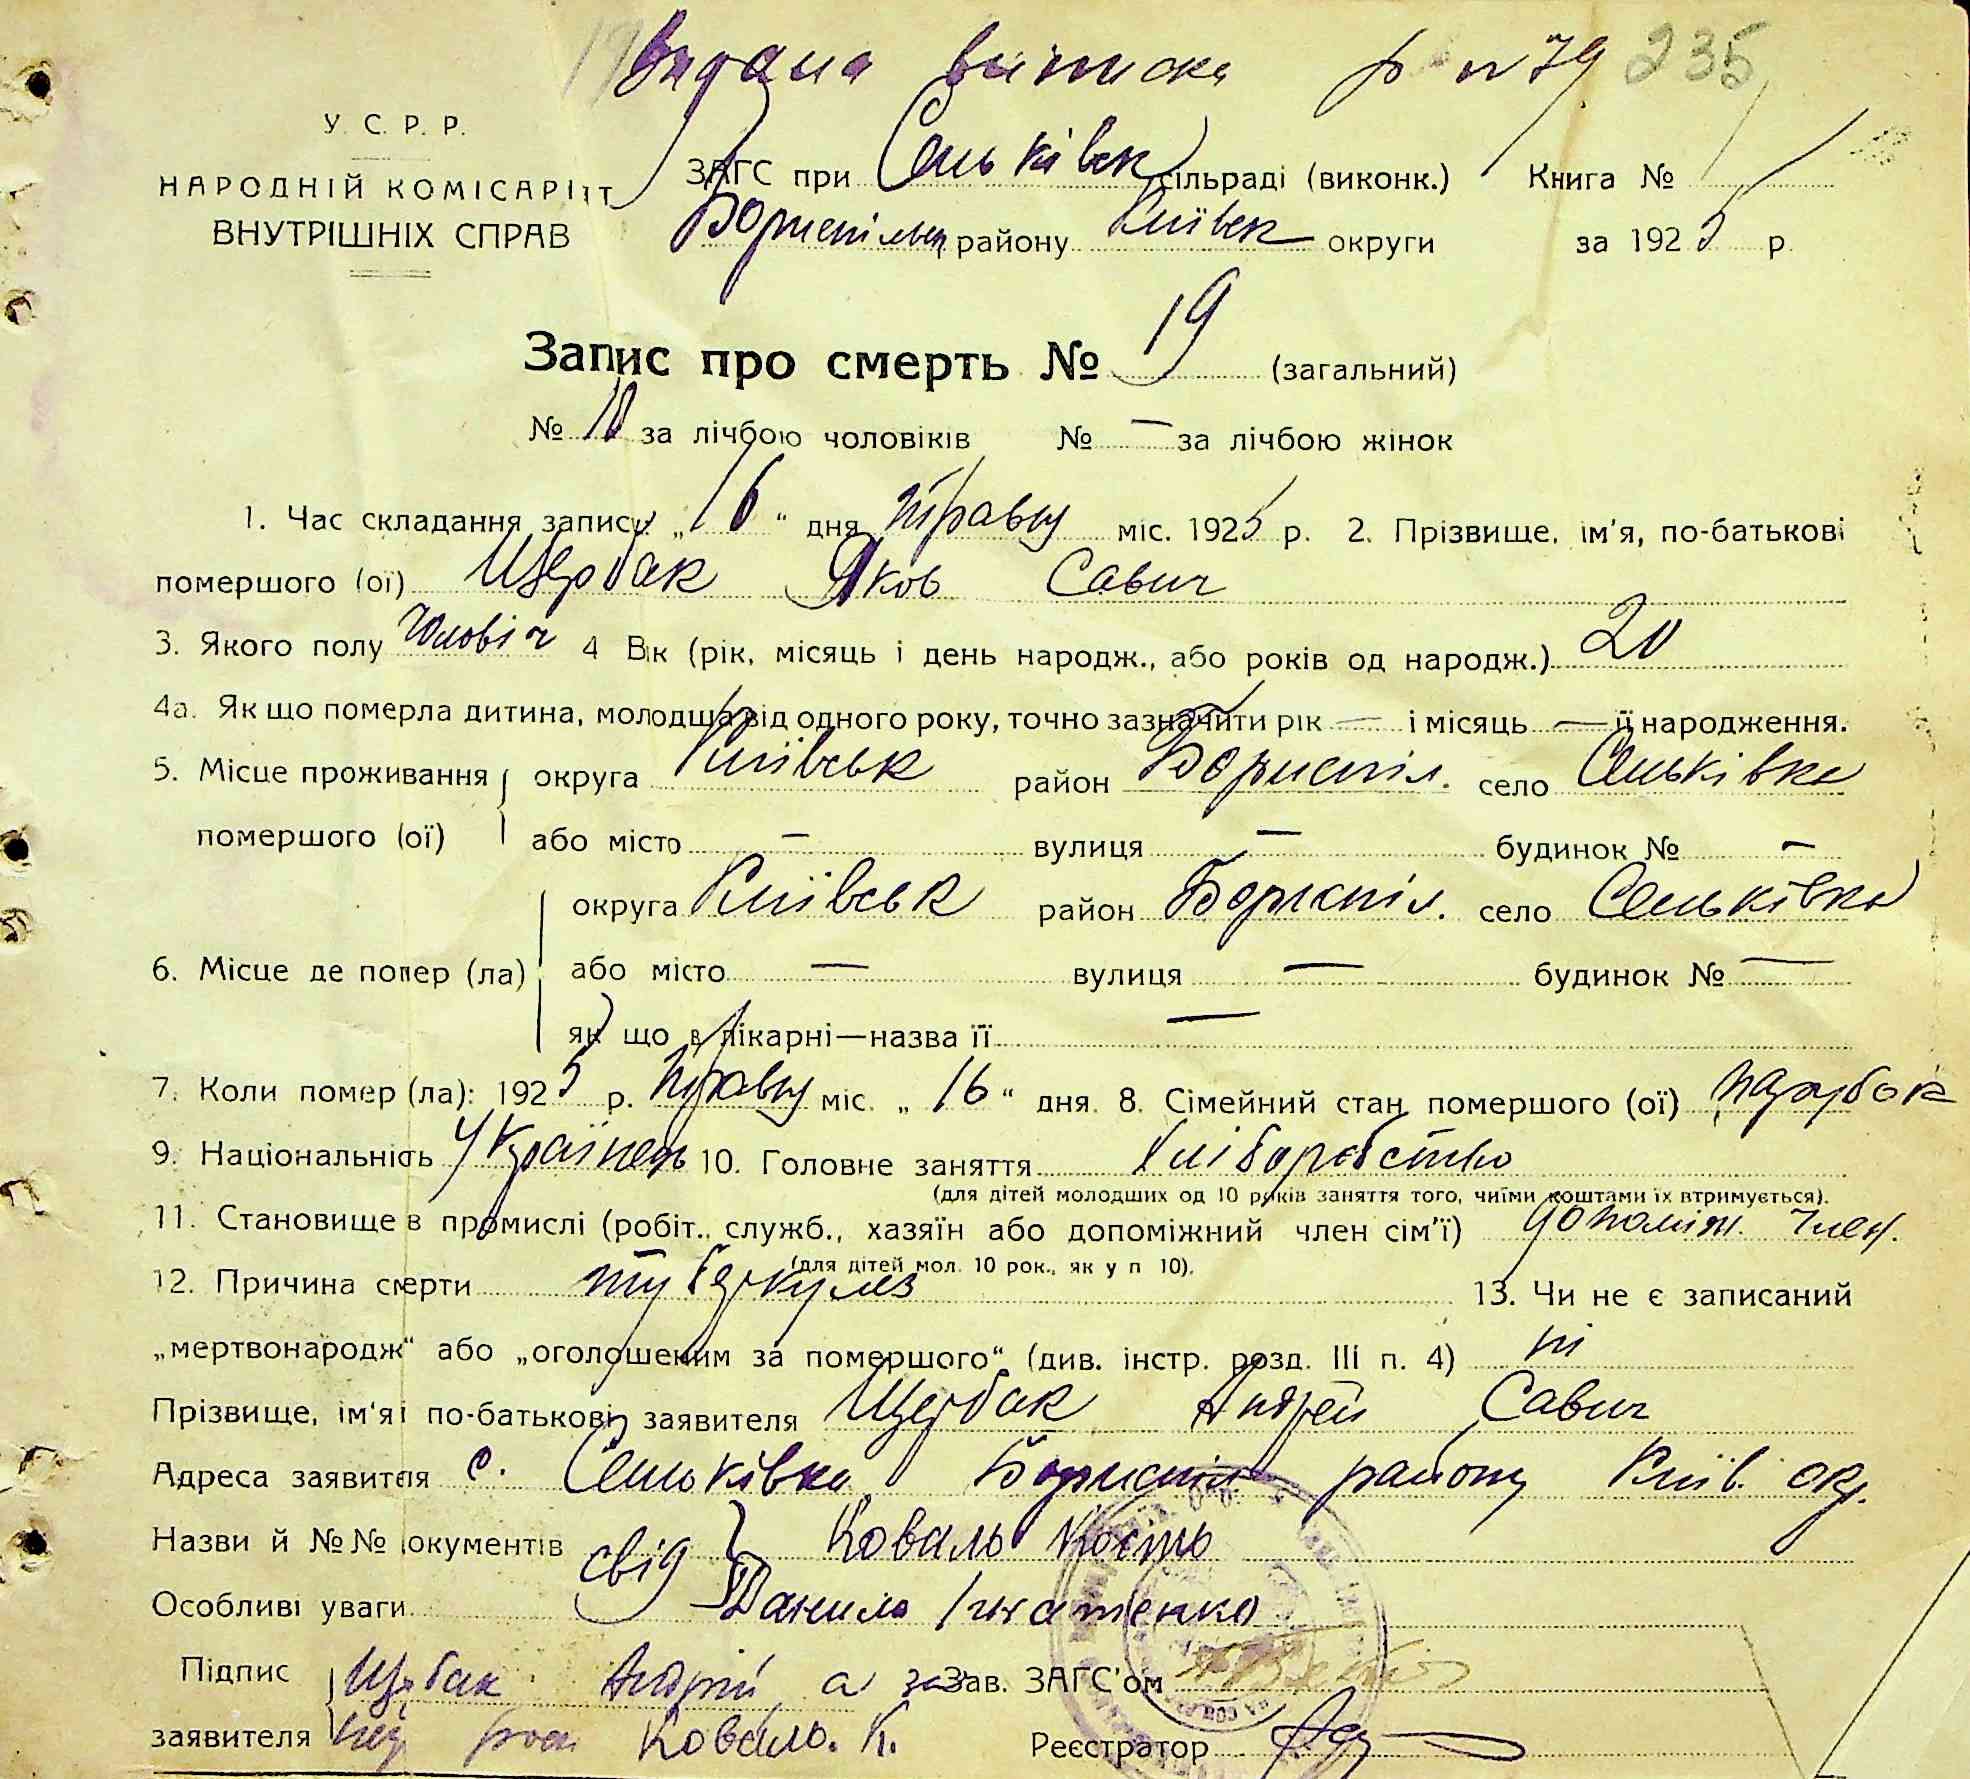 Видана виписка № 79 235
У. С. Р. Р.
НАРОДНІЙ КОМІСАРІЯТ
ВНУТРІШНІХ СПРАВ
ЗАГС при Сеньківськ сільраді (виконк.) Книга № 1
Бориспільськ району Київськ округи за 1925 р.
Запис про смерть № 19 (загальний)
№ 10 за лічбою чоловіків № — за лічбою жінок
1. Час складання запису „16“ дня травня міс. 1925 р. 2. Прізвище, ім'я, по-батькові
помершого (ої) Щербак Яков Савич
3. Якого полу чоловіч 4 Вік (рік, місяць і день народж., або років од народж.) 20
4а. Як що померла дитина, молодша від одного року, точно зазначити рік — і місяць — її народження.
5. Місце проживання округа Київськ район Бориспіл. село Сеньківка
помершого (ої) або місто — вулиця — будинок № —
округа Київськ район Бориспіл. село Сеньківка
6. Місце де помер (ла) або місто — вулиця — будинок № —
як що в лікарні—назва її —
7. Коли помер (ла): 1925 р. травня міс. „16“ дня. 8. Сімейний стан помершого (ої) парубок
9. Національність Українець 10. Головне заняття хліборобство
(для дітей молодших од 10 років заняття того, чиїми коштами їх втримується).
11. Становище в промислі (робіт., служб., хазяїн або допоміжний член сім'ї) допоміж. член.
(для дітей мол. 10 рок., як у п 10).
12. Причина смерти туберкульоз 13. Чи не є записаний
„мертвонародж“ або „оголошеним за помершого“ (див. інстр. розд. III п. 4) ні
Прізвище, ім'я і по-батькові заявителя Щербак Андрей Савич
Адреса заявителя с. Сеньківка Бориспіл району Київ. окр.
Назви й №№ документів свід } Коваль Кость
Особливі уваги Данило Ігнатенко
Підпис Щербак Андрій, а за Зав. ЗАГС'ом
заявителя Коваль. К. Реєстратор